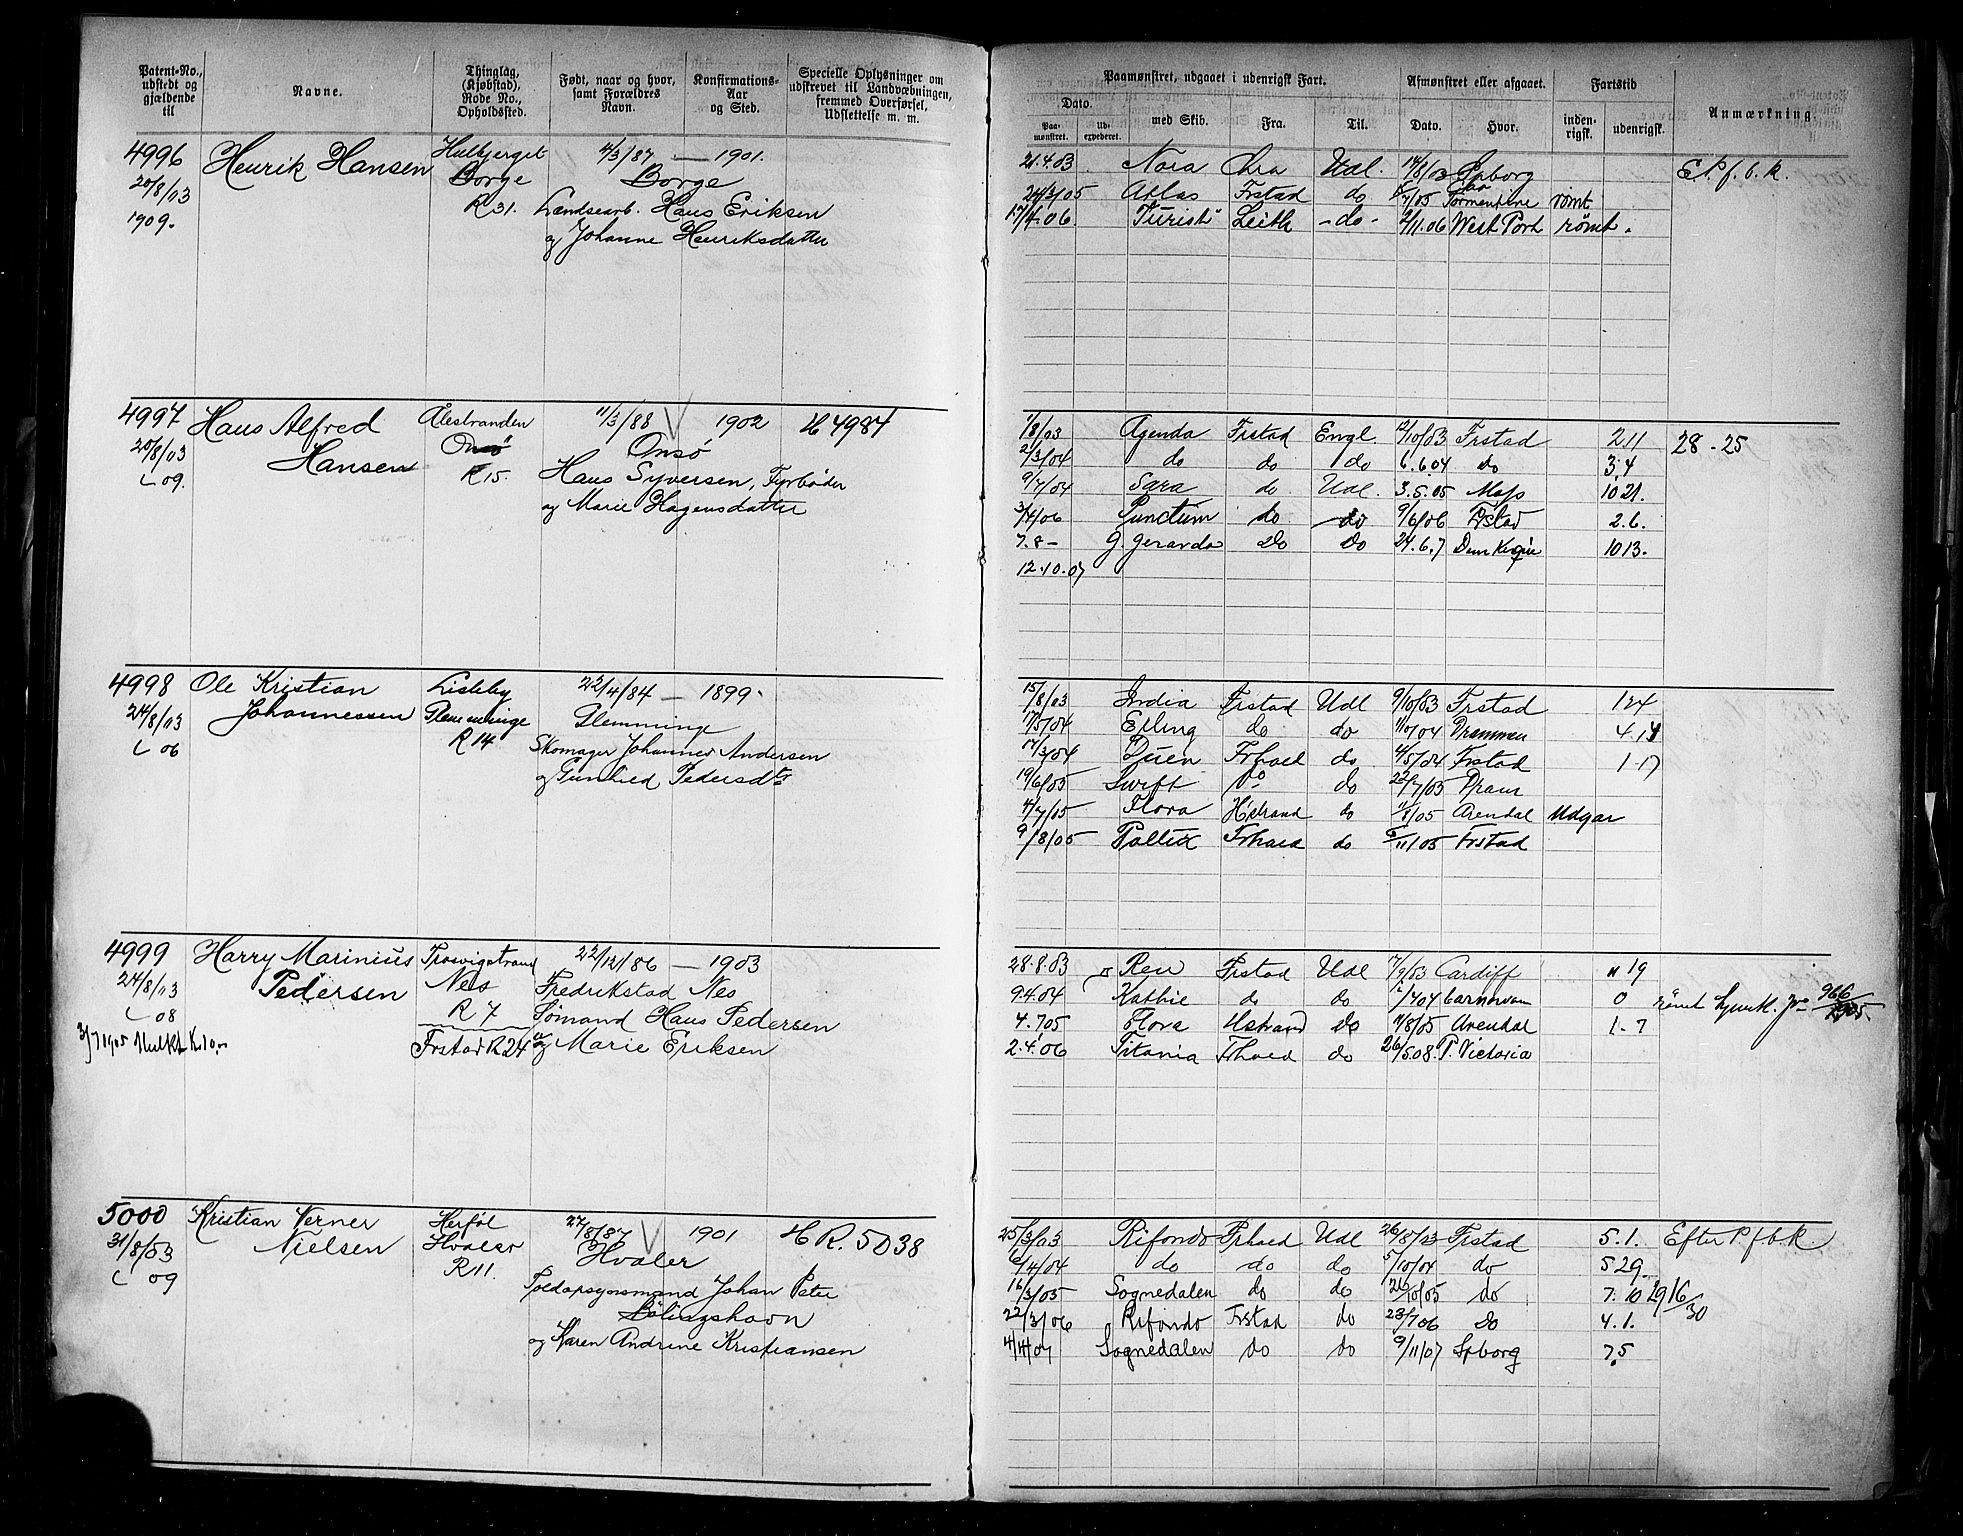 Patent-No., udstedt og gjældende til
Navne.
Thinglag, (Kjøbstad), Rode No., Opholdssted.
Født, naar og hvor, samt Forældres Navn.
Konfirmations-Aar og Sted.
Specielle Oplysninger om udskrevet til Landværnet, fremmed Overførsel, Udslettelse m. m.
4996 Henrik Hansen 4/3/87 — 1901.
20/8/03 Borge Borge
1909. R 31. Hans Eriksen
og Johanne Henriksdatter
4997 Hans Alfred Ålestranden 11/3/88 1902 H 4984
20/8/03 Hansen Onsø Onsø
09. R 15. Hans Syversen, Fyrbøder
og Marie Hagensdatter
4998 Ole Kristian Lisleby 22/4/84 — 1899.
24/8/03 Johannessen Glemminge Glemminge
06 R 14 Skomager Johannes Andersen
og Gunhild Pedersdtr
4999 Harry Marinius Trosvigstrand 22/12/86 — 1903
24/8/03 Pedersen Nes Fredrikstad Nes
08 R 7 Sømand Hans Pedersen
31/7 1905 Mulkt Kr 10,- Frstad R 24 og Marie Eriksen
5000 Kristian Verner Herføl 27/8/87 1901 H R. 5038
31/8/03 Nielsen Hvaler Hvaler
09 R 11. Toldopsynsmand Johan Peter
og Karen Andrine Kristiansen
Paamønstret, udgaaet i udenrigsk Fart.
Afmønstret eller afgaaet.
Fartstid
Anmærkning.
Dato.
Paa-mønstret.
Ud-expederet.
med Skib.
Fra.
Til.
Dato.
Hvor.
inden-rigsk.
udenrigsk.
21.4.03 Nora Chra Udl. 14/8/03 Spborg E P. f. b. k.
24/3/05 Atlas Frstad do rømt
17/4.06. "Turist" Leith -do- 2/11.06 West Port rømt.
1/8/03 Agenda Frstad Engl. 12/10/03 Frstad 2 11 28-25
2/3/04 do do do 6.6.04 do 3.4
9/7/04 Sara do Udl. 3.5.05 Moss 10 21.
3/4/06 Punctum do do 9/6/06 Frstad 2.6.
7.8- G. Gerarda do do 24.6.7 10 13.
12.10.07
15/8/03 India Frstad Udl 9/10/03 Frstad 1 24
17/5/04 Elling do do 11/10/04 Drammen
17/3/04 do 4/5/04 Frstad 1-17
19/6/05 Swift do do 22/7/05 Dram
4/7/05 Flora Hstrand do 1/8/05 Arendal Udgar
9/8/05 Pollux do 6/11/05 Frstad
28.8.03 Ren Frstad Udl 17/9/03 Cardiff " 19
9.4.04 Kathie do do Carnarvon 0 rømt 966/1905.
4.7.05 Flora Hstrand do 1/8/05 Arendal 1-7
2.4.06 Titania do 26/5 08. P. Victoria
25/3/03 Rifondo Udl 26/8/03 Frstad 5.1. Efter P f b k.
6/4/04 do do do 5/10/04 do 5 29.
16/3/05 Sognedalen do do do 7.10 29 16/30
22/3/06 Rifondo Frstad do 23/7 06 do 4.1.
4/4/07 Sognedalen do do 9/11/07 Spborg 7.5